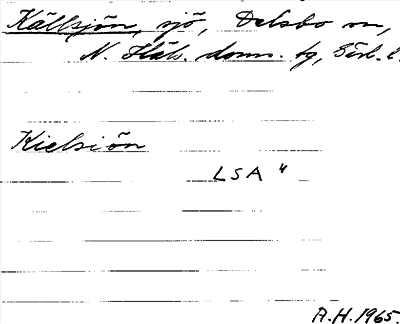 Källsjön, sjö, Delsbo sn,
N. Häls. doms. tg, Gävl. l.
Kielsiön
LSA "
A.H. 1965.